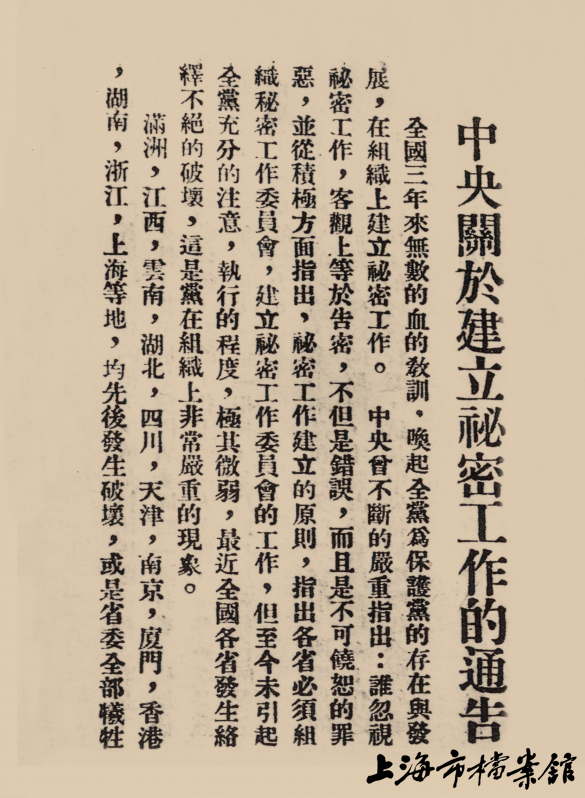 中央關於建立祕密工作的通告
全國三年來無數的血的教訓，喚起全黨爲保護黨的存在與發
展，在組織上建立祕密工作。中央曾不斷的嚴重指出：誰忽視
祕密工作，客觀上等於告密，不但是錯誤，而且是不可饒恕的罪
惡，並從積極方面指出，祕密工作建立的原則，指出各省必須組
織秘密工作委員會，建立祕密工作委員會的工作，但至今未引起
全黨充分的注意，執行的程度，極其微弱，最近全國各省發生絡
繹不絕的破壞，這是黨在組織上非常嚴重的現象。
滿洲，江西，雲南，湖北，四川，天津，南京，廈門，香港
，湖南，浙江，上海等地，均先後發生破壞，或是省委全部犧牲
上海市檔案館